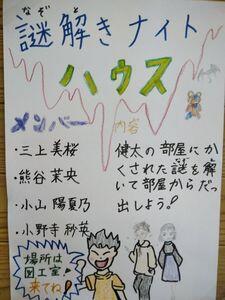 謎解きナイト
なぞ と
ハウス
メンバー
・三上美桜
・熊谷茉央
・小山陽夏乃
・小野寺紗英
内容
健太の部屋にか
くされた謎を解
いて部屋からだっ
出しよう!
場所は
図工室
来てね!